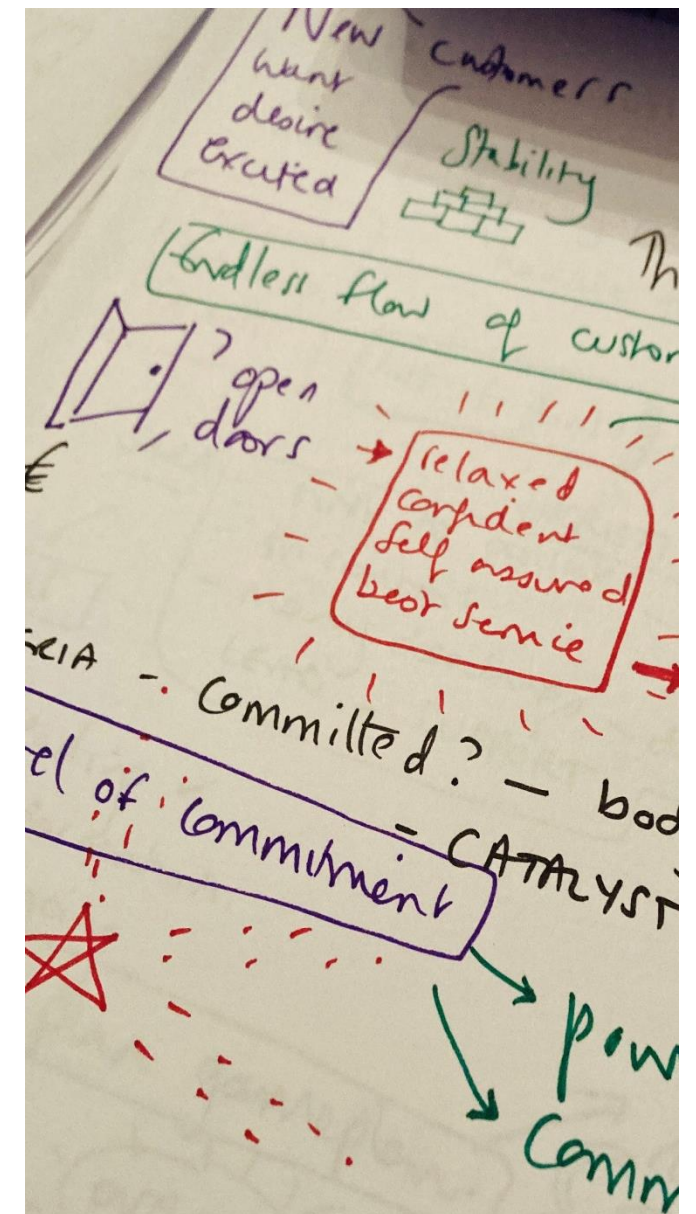 New customers
want
desire
excited
Stability
Th
Endless flow of custom
? open
doors
€
relaxed
confident
self assured
best service
ERIA - Committed? - bod
- CATALYST
el of commitment
pow
Comm